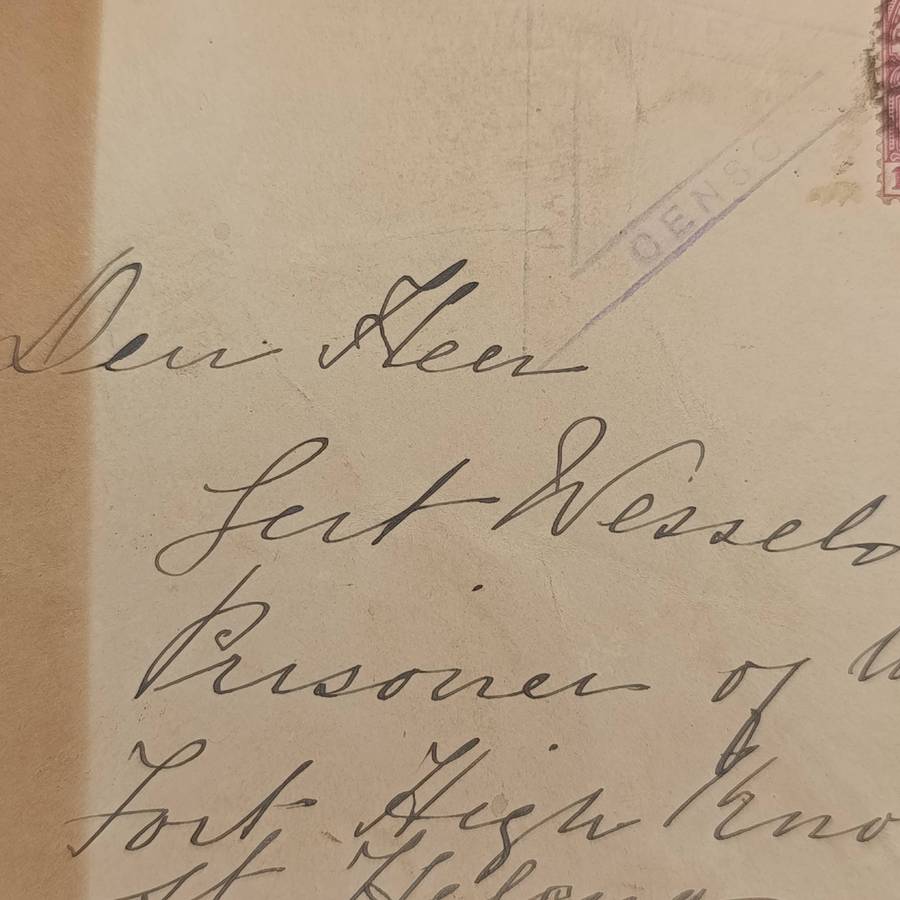 CENSO
Den Heer
Gert Wessels
Prisoner of W
Fort High Kno
St. Helena